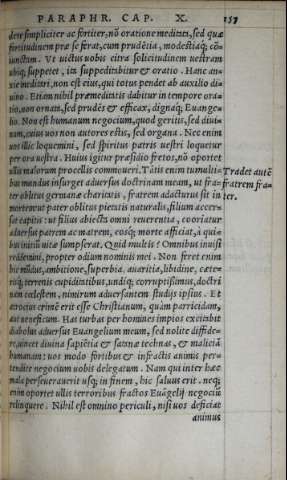 PARAPHR. CAP. X. 157
dete simpliciter ac fortiter, nō oratione meditati, sed quæ
fortitudinem præ se ferat, cum prudētia, modestiaq́; cō-
iunctam. Vt uictus uobis citra solicitudinem uestram
ubiq; suppetet, ita suppeditabitur & oratio. Hanc an-
xie meditari, non est eius, qui totus pendet ab auxilio di-
uino. Etiam nihil præmeditatis dabitur in tempore ora-
tio, non ornata, sed prudēs & efficax, dignaq́; Euange-
lio. Non est humanum negocium, quod geritis, sed diui-
num, cuius uos non autores estis, sed organa. Nec enim
uos illic loquemini, sed spiritus patris uestri loquetur
per ora uestra. Huius igitur præsidio fretos, nō oportet
ullis malorum procellis commoueri. Tātis enim tumulti-
bus mundus insurget aduersus doctrinam meam, ut fra-
ter oblitus germanæ charitatis, fratrem adacturus sit in
mortem: ut pater oblitus pietatis naturalis, filium accer-
sat capitis: ut filius abiecta omni reuerentia, cooriatur
aduersus patrem ac matrem, eosq́; morte afficiat, à qui-
bus initiū uitæ sumpserat. Quid multis? Omnibus inuisi
reddemini, propter odium nominis mei. Non feret enim
hic mūdus, ambitione, superbia, auaritia, libidine, cæte-
risq́; terrenis cupiditatibus, undiq; corruptissimus, doctri
nam cœlestem, nimirum aduersantem studijs ipsius. Et
atrocius crimē erit esse Christianum, quàm parricidam,
aut ueneficum. Has turbas per homines impios excitabit
diabolus aduersus Euangelium meum, sed nolite diffide-
re, uincet diuina sapiētia & satanæ technas, & maliciā
humanam: uos modo fortibus & infractis animis per-
tendite negocium uobis delegatum. Nam qui inter hæc
mala perseuerauerit usq; in finem, hic saluus erit. neq;
enim oportet ullis terroribus fractos Euāgelij negociū
relinquere. Nihil est omnino periculi, nisi uos deficiat
animus
Tradet autē
fratrem fra-
ter.